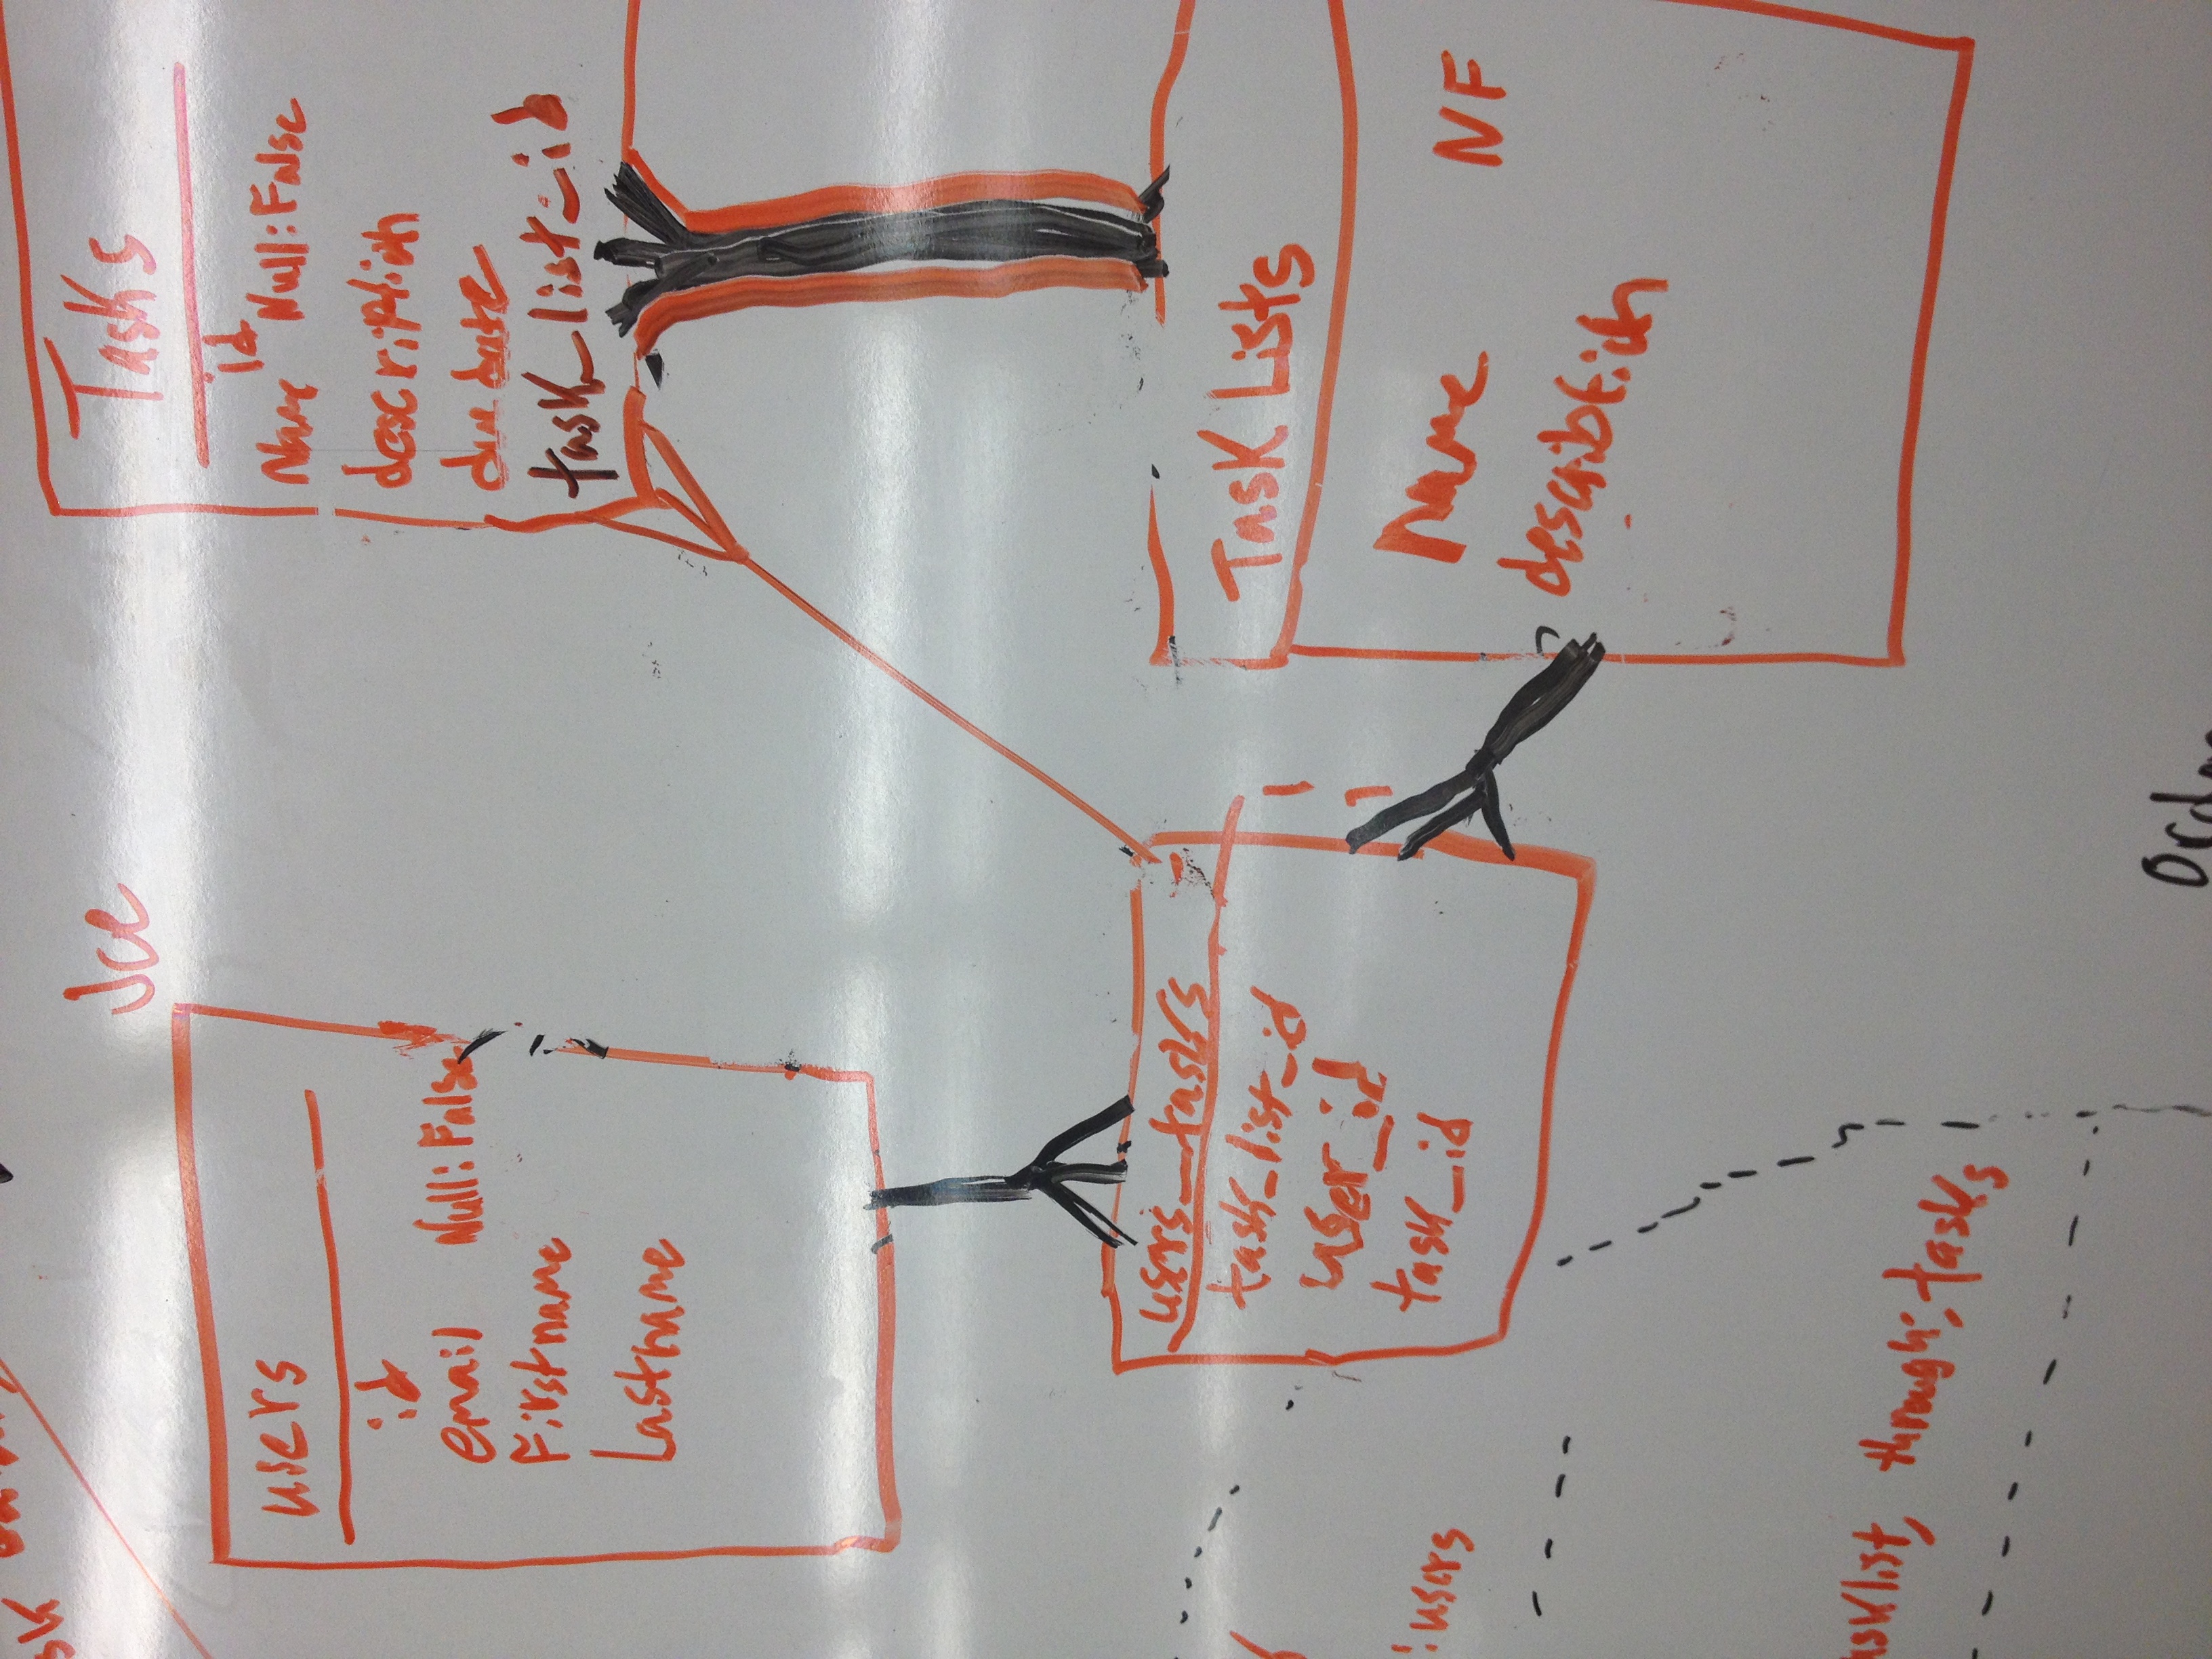 Joe
users
id
email Null:False
Firstname
Lastname
Tasks
id
Name Null:False
description
due date
task_list_id
users_tasks
task_list_id
user_id
task_id
Task Lists
Name NF
describtion
:users
asklist, through:, tasks